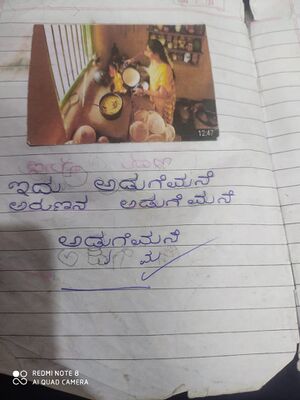 12:47
ಇದು ಅಡುಗೆಮನೆ
ಅರುಣನ ಅಡುಗೆ ಮನೆ
ಅಡುಗೆಮನೆ
REDMI NOTE 8
AI QUAD CAMERA